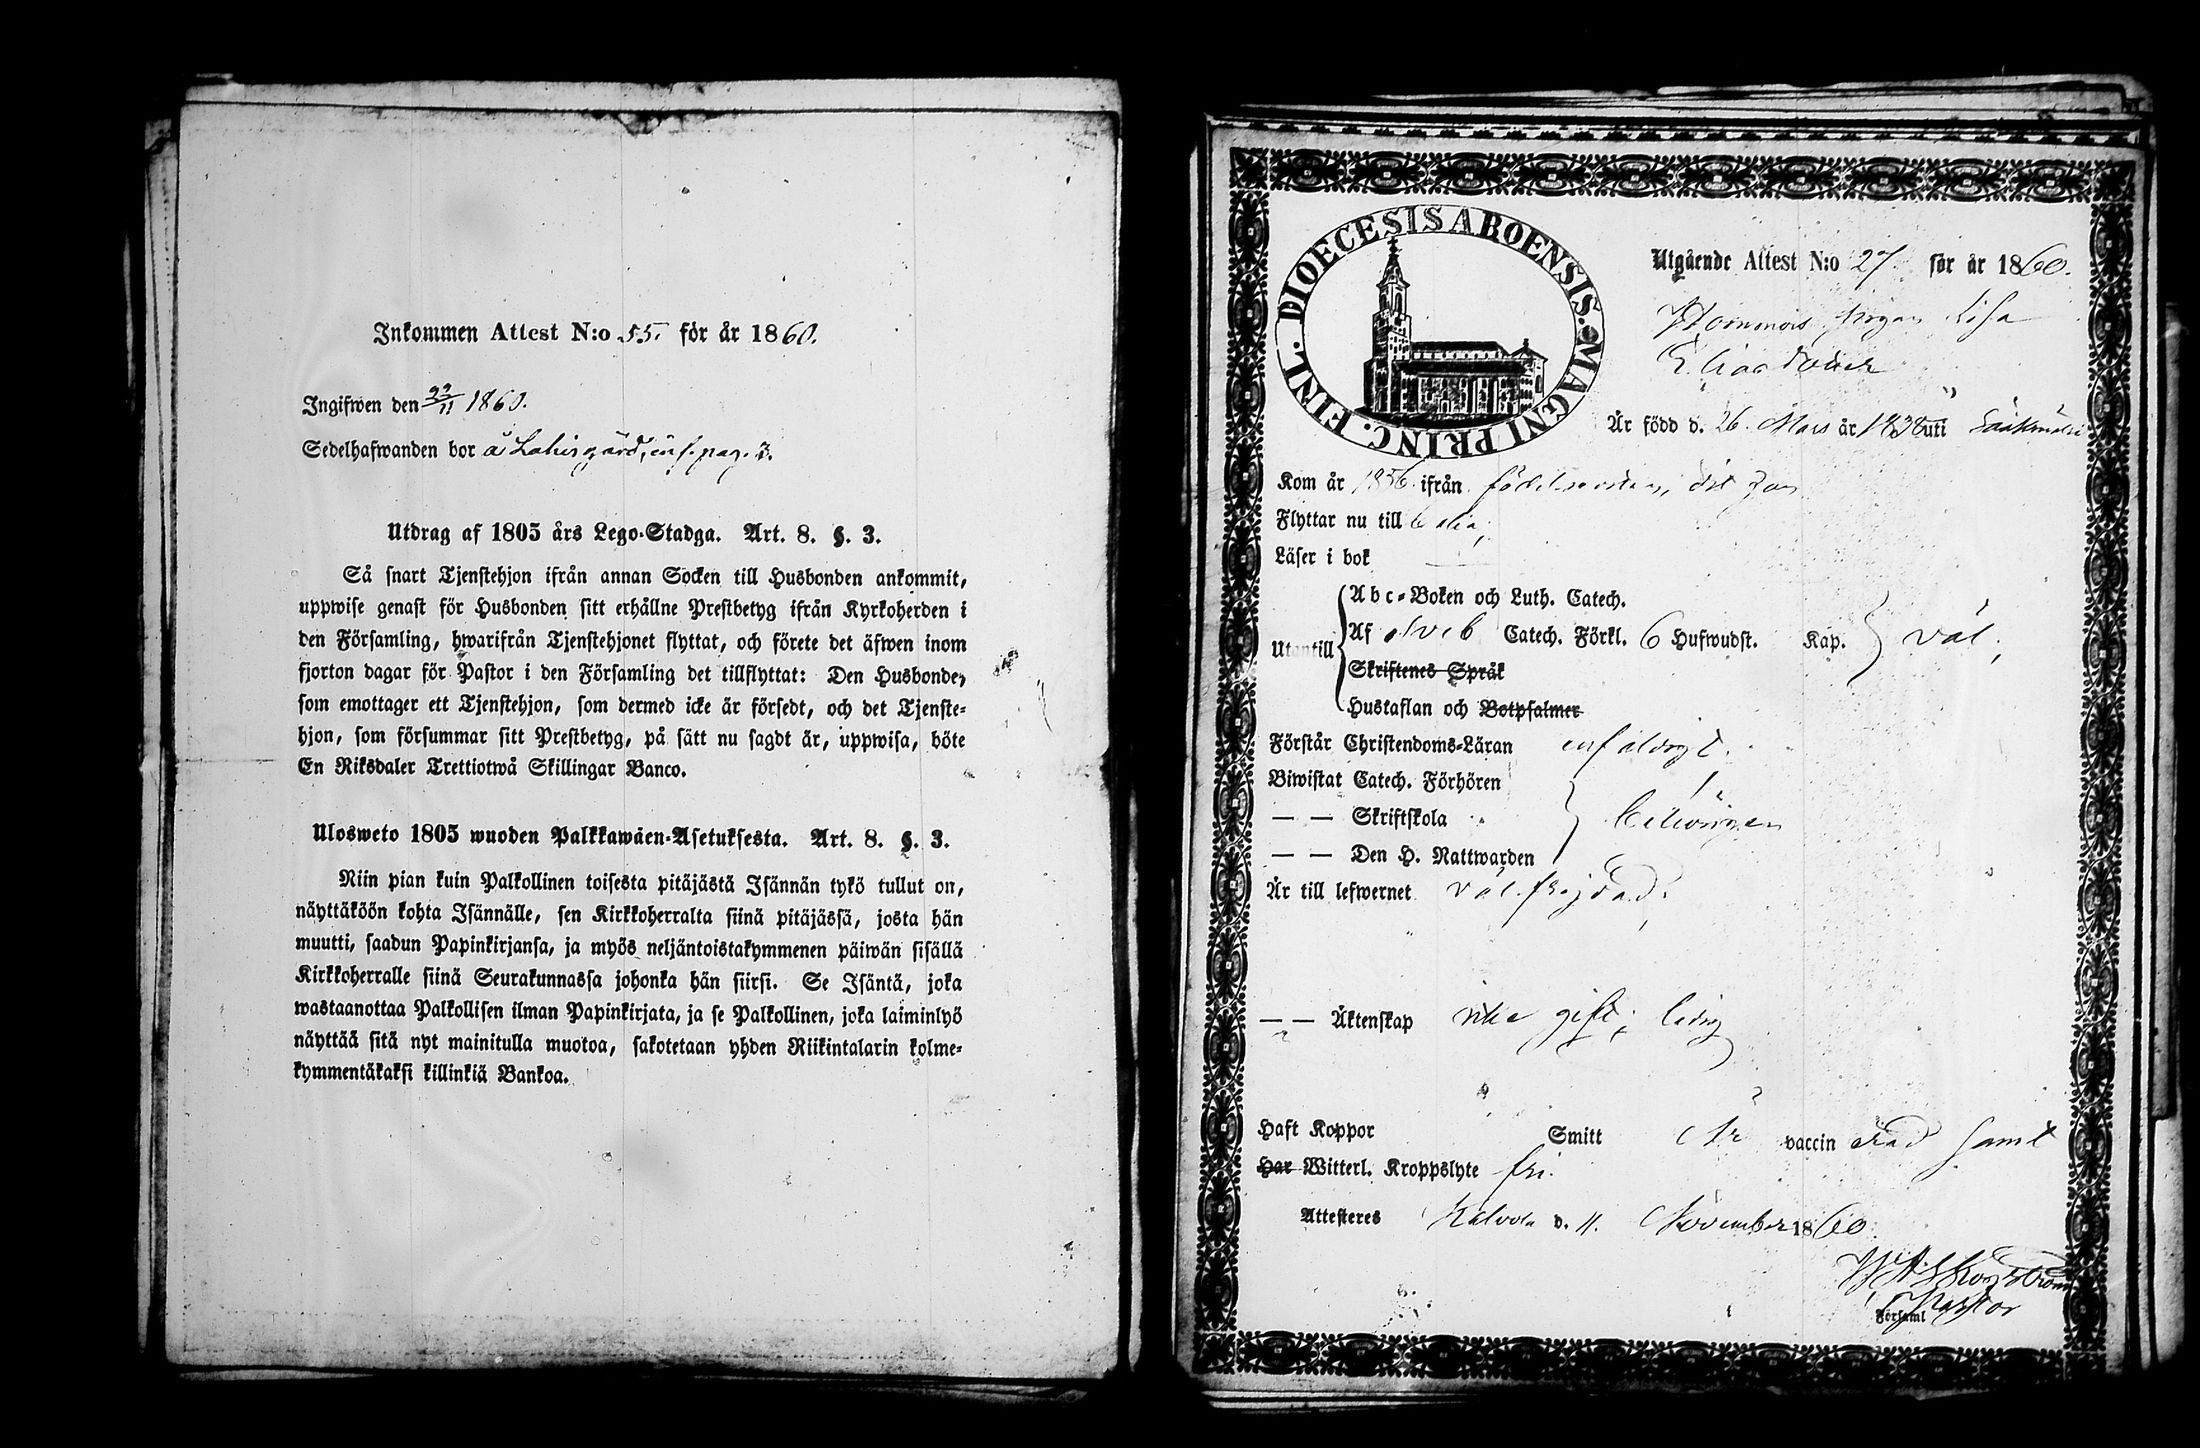 Inkommen Attest N:o 55. för år 1860.
Ingifwen den 22/11 1860.
Sedelhafwanden bor å Lahisgård, inf. pag. 3.
Utdrag af 1805 års Lego-Stadga. Art. 8. §. 3.
Så snart Tjenstehjon ifrån annan Socken till Husbonden ankommit,
uppwise genast för Husbonden sitt erhållne Prestbetyg ifrån Kyrkoherden i
den Församling, hwarifrån Tjenstehjonet flyttat, och förete det äfwen inom
fjorton dagar för Pastor i den Församling det tillflyttat: Den Husbonde,
som emottager ett Tjenstehjon, som dermed icke är försedt, och det Tjenste-
hjon, som försummar sitt Prestbetyg, på sätt nu sagdt är, uppwisa, böte
En Riksdaler Trettiotwå Skillingar Banco.
Ulosweto 1805 wuoden Palkkawäen-Asetuksesta. Art. 8. §. 3.
Niin pian kuin Palkollinen toisesta pitäjästä Isännän tykö tullut on,
näyttäköön kohta Isännälle, sen Kirkkoherralta siinä pitäjässä, josta hän
muutti, saadun Papinkirjansa, ja myös neljäntoistakymmenen päiwän sisällä
Kirkkoherralle siinä Seurakunnassa johonka hän siirsi. Se Isäntä, joka
wastaanottaa Palkollisen ilman Papinkirjata, ja se Palkollinen, joka laiminlyö
näyttää sitä nyt mainitulla muotoa, sakotetaan yhden Riikintalarin kolme-
kymmentäkaksi killinkiä Bankoa.
DIOECESIS ABOENSIS. MAGNI PRINC. FINL.
Utgående Attest N:o 27 för år 1860.
pigan Lisa
Eliasdotter
Är född d. 26 Mars år 1838 uti Sääksmäki
Kom år 1856 ifrån födelseorten,
Flyttar nu till
Läser i bok
Utantill
Abc-Boken och Luth. Catech.
Af Sveb Catech. Förkl. 6 Hufwudst. Kap. väl;
Skriftenes Språk
Hustaflan och Botpsalmer
Förstår Christendoms-Läran enfaldigt.
Biwistat Catech. Förhören
— — Skriftskola behörigen
— — Den H. Nattwarden
Är till lefwernet väl frejdad.
— — Äktenskap icke gift; ledig
Haft Koppor Smitt Är vaccinerad samt
Har Witterl. Kroppslyte fri.
Attesteres Kalvola d. 11. November 1860
Pastor
Församl